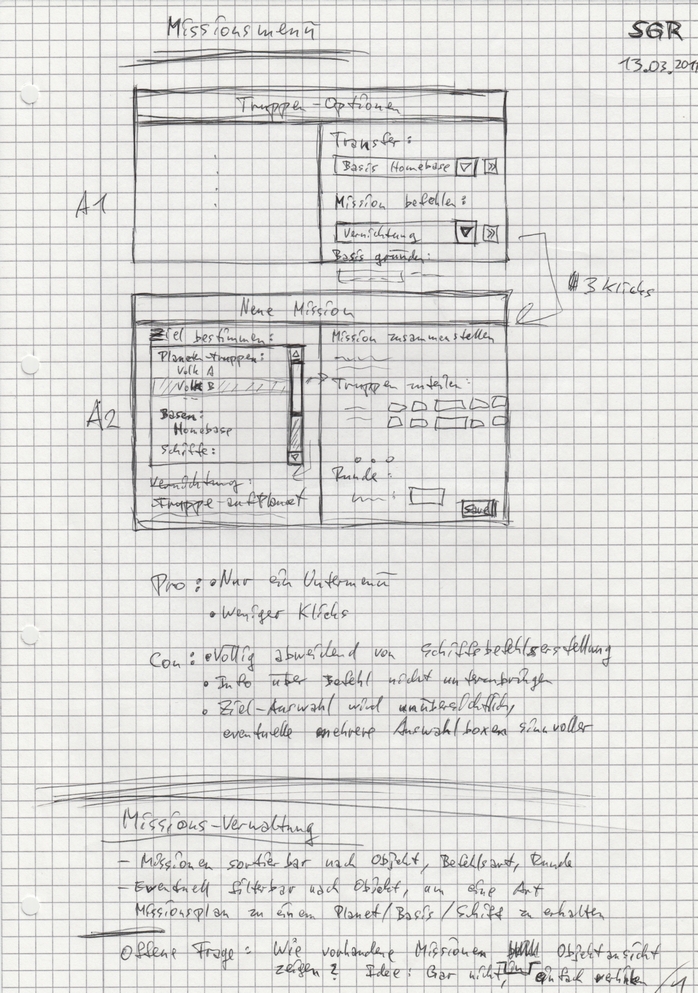 Missionsmenü
SGR
13.03.201
Truppen-Optionen
Transfer:
Basis Homebase
Mission befehlen:
Vernichtung
Basis gründen:
A1
3 Klicks
Neue Mission
Ziel bestimmen:
Planeten-truppen:
Volk A
Volk B
Basen:
Homebase
Schiffe:
Vernichtung:
Truppe auf Planet
A2
Mission zusammenstellen
Truppen zuteilen:
Runde:
Save
Pro: • Nur ein Untermenü
• Weniger Klicks
Con: • Völlig abweichend von Schiffsbefehlserstellung
• Info über Befehl nicht unterzubringen
• Ziel-Auswahl wird unübersichtlich,
eventuelle mehrere Auswahlboxen sinnvoller
Missions-Verwaltung
- Missionen sortierbar nach Objekt, Befehlsart, Runde
- Eventuell filterbar nach Objekt, um eine Art
Missionsplan zu einem Planet/Basis/Schiff zu erhalten
Offene Frage: Wie vorhandene Missionen Objektansicht
zeigen? Idee: Gar nicht, einfach